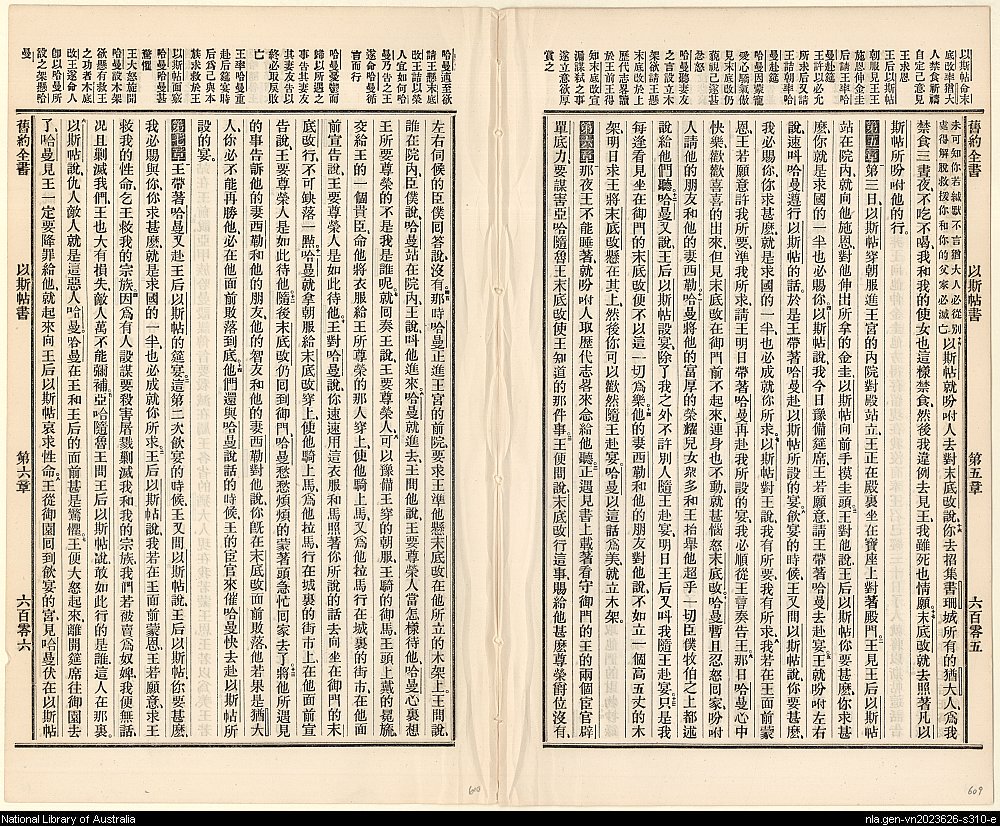 以斯帖命末
底改率猶大
人禁食祈禱
自定己意見
王求恩
王后以斯帖
朝服見王王
施恩伸金圭
后請王率哈
曼赴筵
王許以必允
所求后又請
王詰朝率哈
曼赴筵
哈曼因蒙寵
愛心驕氣傲
見末底改仍
藐視己遂甚
忿怒
哈曼聽妻友
之言設立木
架欲請王懸
末底改於上
歷代志畧讀
於王前王得
知末底改宣
洩謀弒之事
遂立意欲厚
賞之
舊約全書 以斯帖書 第五章 六百零五
未可知你若緘默不言猶大人必從別
處得解脫救援你和你的父家必滅亡以斯帖就吩咐人去對末底改說你去招集書珊城所有的猶大人爲我
禁食三晝夜不吃不喝我和我的使女也這樣禁食然後我違例去見王我雖死也情願末底改就去照著凡以
斯帖所吩咐他的行。
第五章 第三日以斯帖穿朝服進王宮的內院對殿站立王正在殿裏坐在寶座上對著殿門王見王后以斯帖
站在院內就向他施恩對他伸出所拿的金圭以斯帖向前手摸圭頭王對他說王后以斯帖你要甚麼你求甚
麼你就是求國的一半也必賜你以斯帖說我今日豫備筵席王若願意請王帶著哈曼去赴宴王就吩咐左右
說速叫哈曼遵行以斯帖的話於是王帶著哈曼赴以斯帖所設的宴飮宴的時候王又問以斯帖說你要甚麼
我必賜你你求甚麼就是求國的一半也必成就你所求以斯帖對王說我有所要我有所求我若在王面前蒙
恩王若願意許我所要準我所求請王明日帶著哈曼再赴我所設的宴我必順從王旨奏告王那日哈曼心中
快樂歡歡喜喜的出來但見末底改在御門前不起來連身也不動就甚惱怒末底改哈曼暫且忍怒回家吩咐
人請他的朋友和他的妻西勒哈曼將他的富厚的榮耀兒女衆多和王抬舉他超乎一切臣僕牧伯之上都述
說給他們聽哈曼又說王后以斯帖設宴除了我之外不許別人隨王赴宴明日王后又叫我隨王赴宴只是我
每逢看見坐在御門的末底改便不以這一切爲樂他的妻西勒和他的朋友對他說不如立一個高五丈的木
架明日求王將末底改懸在其上然後你可以歡然隨王赴宴哈曼以這話爲美就立木架。
第六章 那夜王不能睡著就吩咐人取歷代志畧來念給他聽正遇見書上載著看守御門的王的兩個臣宦辟
單底力要謀害亞哈隨魯王末底改使王知道的那件事王便問說末底改行這事賜給他甚麼尊榮爵位沒有
609
哈曼適至欲
請王懸末底
改王詰以榮
人宜如何哈
曼乃告之王
遂命哈曼循
言而行
哈曼憂鬱而
歸以所遇之
事告其妻友
其妻友告以
終必取戾敗
亡
王率哈曼重
赴后筵宴時
后爲己與本
族求救於王
以斯帖面窾
哈曼哈曼甚
驚懼
王大怒施開
哈曼設木架
欲懸有救王
之功者末底
改王遂命人
卽以哈曼所
設之架懸哈
曼
左右伺候的臣僕回答說沒有那時哈曼正進王宮的前院要求王準他懸末底改在他所立的木架上王問說
誰在院內臣僕說哈曼站在院內王說叫他進來哈曼就進去王問他說王要尊榮人當怎樣待他哈曼心裏想
王所要尊榮的不是我是誰呢就回奏王說王要尊榮人可以豫備王穿的朝服王騎的御馬王頭上戴的冕旒
交給王的一個貴臣命他將衣服給王所尊榮的那人穿上使他騎上馬又爲他拉馬行在城裏的街市上在他面
前宣告說王要尊榮人是如此待他王對哈曼說你速速用這衣服和馬照著你所說的話去向坐在御門的末
底改行不可缺落一點哈曼就拿朝服給末底改穿上使他騎上馬爲他拉馬行在城裏的街市上在他面前宣
告說王要尊榮人是如此待他隨後末底改仍回到御門哈曼愁愁煩煩的蒙著頭急忙回家去了將他所遇見
的事告訴他的妻西勒和他的朋友他的智友和他的妻西勒對他說你旣在末底改面前敗落他若果是猶大
人你必不能再勝他必在他面前敗落到底他們還與哈曼說話的時候王的臣宦來催哈曼快去赴以斯帖所
設的宴。
第七章 王帶著哈曼又赴王后以斯帖的筵宴這第二次飮宴的時候王又問以斯帖說王后以斯帖你要甚麼
我必賜與你你求甚麼就是求國的一半也必成就你所求王后以斯帖說我若在王面前蒙恩王若願意求王
救我的性命乞王救我的宗族因爲有人設謀要殺害屠戮剿滅我和我的宗族我們若被賣爲奴婢我便無話
況且剿滅我們王也大有損失敵人萬不能彌補亞哈隨魯王問王后以斯帖說敢如此行的是誰這人在那裏
以斯帖說仇人敵人就是這惡人哈曼哈曼在王和王后的面前甚是驚懼王便大怒起來離開筵席往御園去
了哈曼見王一定要降罪給他就起來向王后以斯帖哀求性命王從御園回到飮宴的宮見哈曼伏在以斯帖
舊約全書 以斯帖書 第六章 六百零六
National Library of Australia
nla.gen-vn2023626-s310-e